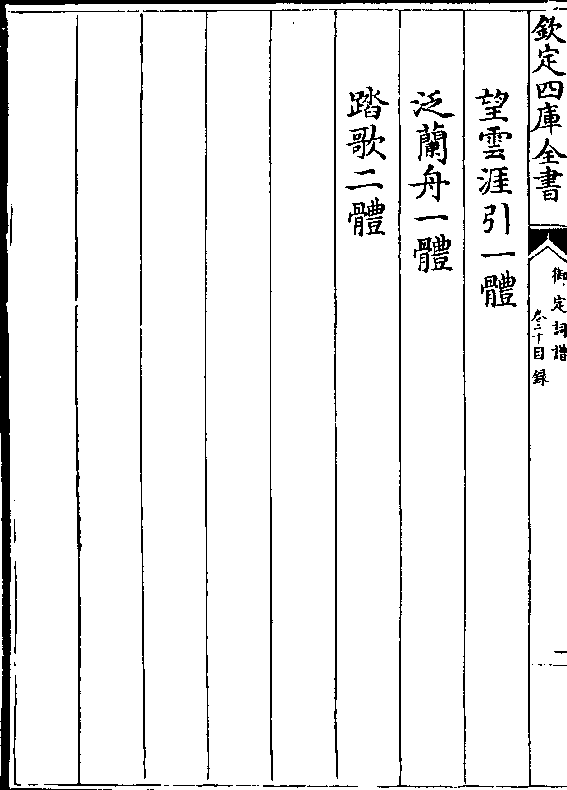 欽定四庫全書
御定詞譜
卷二十目錄
二
望雲涯引一體
泛蘭舟一體
踏歌二體